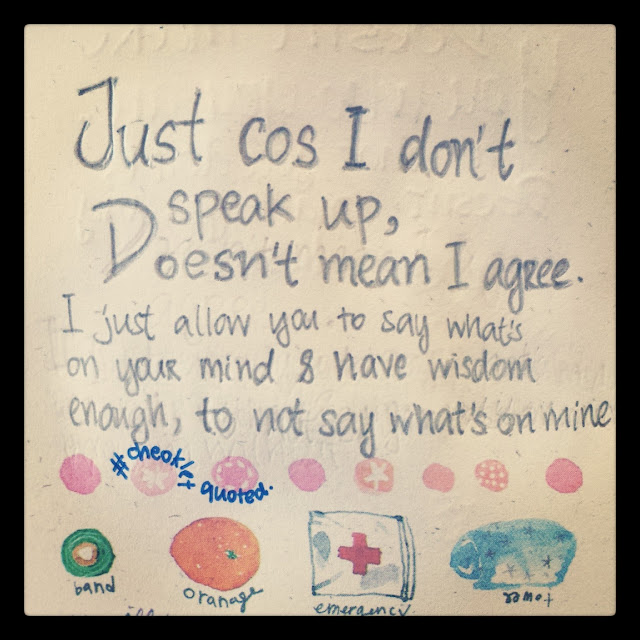 Just cos I don't
speak up,
Doesn't mean I agree.
I just allow you to say what's
on your mind & have wisdom
enough, to not say what's on mine
#cheoklet
quoted.
band
oranage
emergency